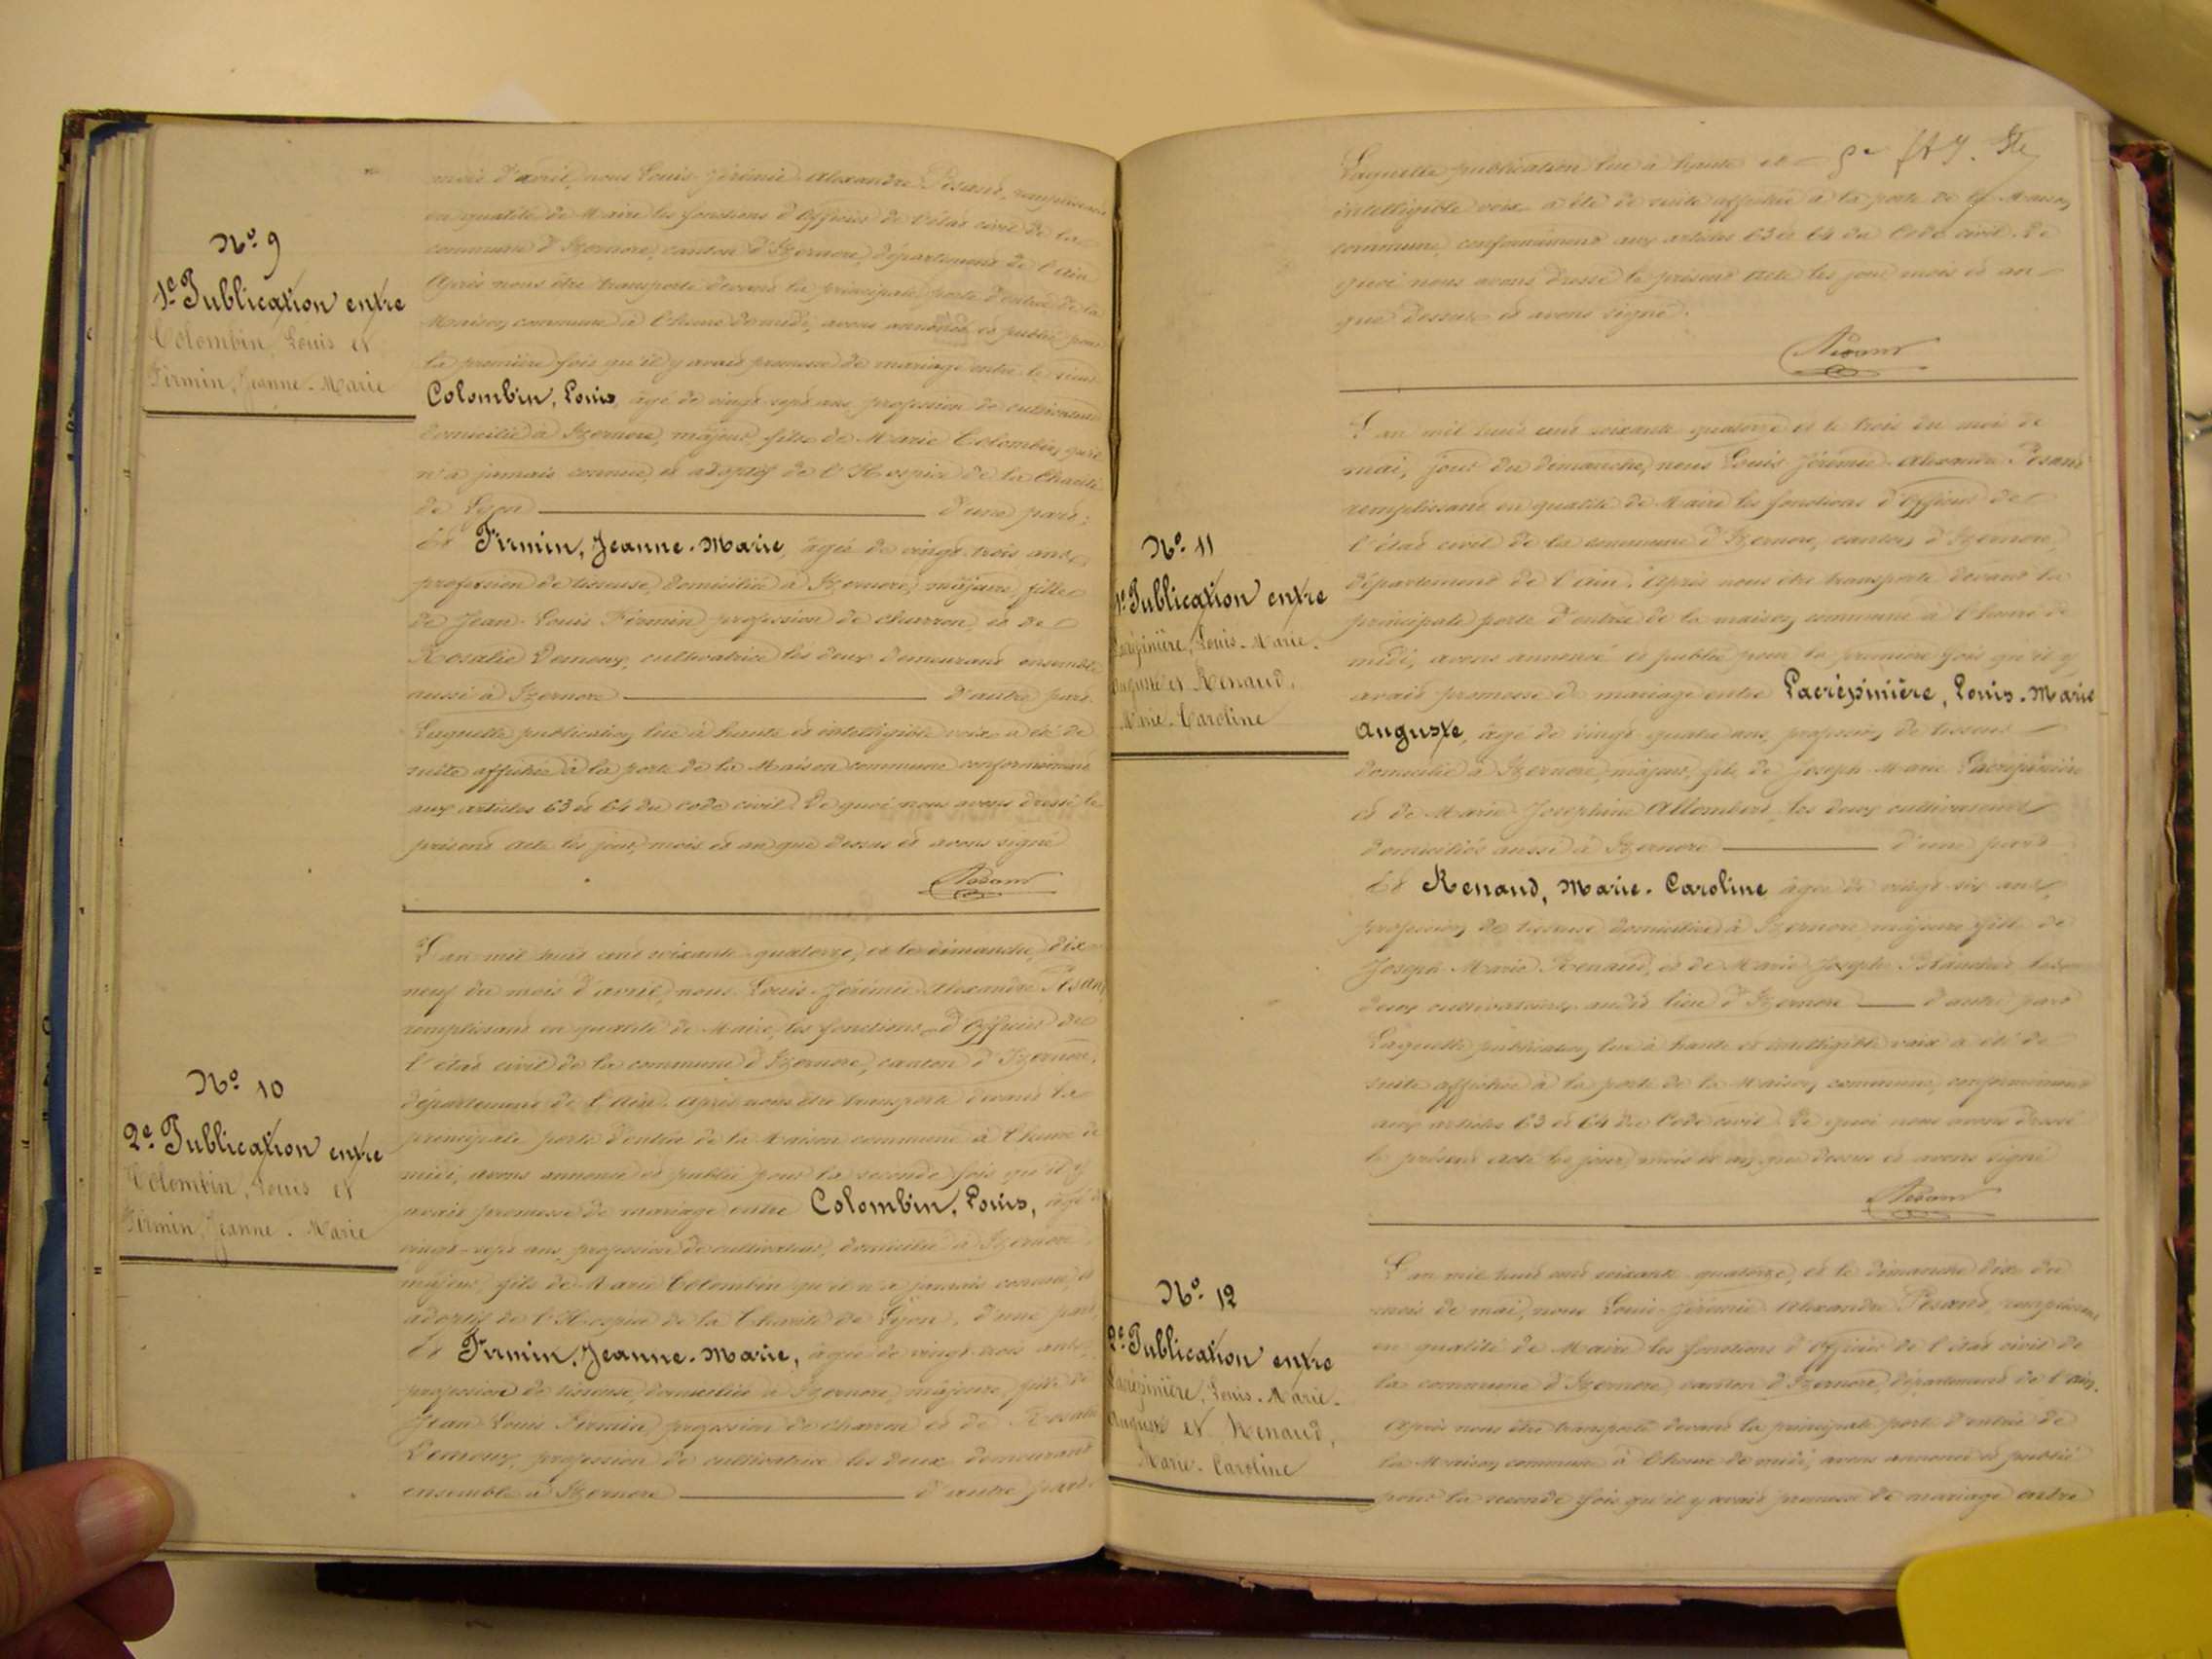 mois d'avril, nous Louis Jérémie Alexandre Pesant, remplissant
en qualité de Maire les fonctions d'Officier de l'état civil de la
commune d'Izernore, canton d'Izernore, département de l'Ain
Après nous être transporté devant la principale porte d'entrée de la
Maison commune à l'heure de midi, avons annoncé et publié pour
la première fois qu'il y avait promesse de mariage entre le sieur
Colombin, Louis, âgé de vingt-sept ans, profession de cultivateur
domicilié à Izernore, majeur, fils de Marie Colombin, qu'il
n'a jamais connue, et adoptif de l'Hospice de la Charité
de Lyon d'une part;
Et Firmin, Jeanne-Marie, âgée de vingt-trois ans,
profession de tisseuse, domiciliée à Izernore, majeure, fille
de Jean-Louis Firmin, profession de charron, et de
Rosalie cultivatrice les deux demeurant ensemble
aussi à Izernore d'autre part.
Laquelle publication, lue à haute et intelligible voix a été de
suite affichée à la porte de la Maison commune conformément
aux articles 63 et 64 du code civil. De quoi nous avons dressé le
présent acte les jour, mois et an que dessus et avons signé
Pesant
Nº 9
1e Publication entre
Colombin, Louis et
Firmin, Jeanne-Marie
L'an mil huit cent soixante-quatorze, et le dimanche, dix
neuf du mois d'avril, nous Louis-Jérémie-Alexandre Pesant
remplissant en qualité de Maire, les fonctions d'Officier de
l'état civil de la commune d'Izernore, canton d'Izernore,
département de l'Ain. Après nous être transporté devant la
principale porte d'entrée de la Maison commune à l'heure de
midi, avons annoncé et publié pour la seconde fois qu'il y
avait promesse de mariage entre Colombin, Louis, âgé de
vingt-sept ans, profession de cultivateur, domicilié à Izernore,
majeur, fils de Marie Colombin qu'il n'a jamais connue, et
adoptif de l'Hospice de la Charité de Lyon, d'une part,
Et Firmin, Jeanne-Marie, âgée de vingt-trois ans,
profession de tisseuse, domiciliée à Izernore, majeure, fille de
Jean Louis Firmin, profession de charron et de Rosalie
profession de cultivatrice les deux demeurant
ensemble à Izernore d'autre part.
Nº 10
2e Publication entre
Colombin, Louis et
Firmin, Jeanne-Marie
Laquelle publication lue à haute et
intelligible voix a été de suite affichée à la porte de la Maison
commune, conformément aux articles 63 et 64 du Code civil. De
quoi nous avons dressé le présent acte les jour mois et an
que dessus et avons signé.
Pesant
L'an mil huit cent soixante quatorze et le trois du mois de
mai, jour du dimanche, nous Louis-Jérémie-Alexandre Pesant
remplissant en qualité de Maire les fonctions d'Officier de
l'état civil de la commune d'Izernore, canton d'Izernore,
département de l'Ain. Après nous être transporté devant la
principale porte d'entrée de la maison commune à l'heure de
midi, avons annoncé et publié pour la première fois qu'il y
avait promesse de mariage entre Lacrépinière, Louis-Marie
Auguste, âgé de vingt-quatre ans, profession de tisseur
domicilié à Izernore, majeur, fils de Joseph-Marie Lacrépinière
et de Marie Joséphine Allombert, les deux cultivateurs
domiciliés aussi à Izernore d'une part
Et Renaud, Marie-Caroline âgée de vingt-six ans,
profession de tisseuse domiciliée à Izernore majeure fille de
Joseph-Marie Renaud, et de Marie-Joseph les
deux cultivateurs audit lieu d'Izernore d'autre part
Laquelle publication, lue à haute et intelligible voix a été de
suite affichée à la porte de la Maison commune, conformément
aux articles 63 et 64 du Code civil. De quoi nous avons dressé
le présent acte les jour, mois et an que dessus et avons signé
Pesant
Nº 11
1e Publication entre
Lacrépinière, Louis-Marie-
Auguste et Renaud,
Marie-Caroline
L'an mil huit cent soixante-quatorze, et le dimanche dix du
mois de mai, nous Louis-Jérémie Alexandre Pesant, remplissant
en qualité de Maire les fonctions d'Officier de l'état civil de
la commune d'Izernore, canton d'Izernore, département de l'Ain.
Après nous être transporté devant la principale porte d'entrée de
la Maison commune à l'heure de midi, avons annoncé et publié
pour la seconde fois qu'il y avait promesse de mariage entre
Nº 12
2e Publication entre
Lacrépinière, Louis-Marie-
Auguste et Renaud,
Marie-Caroline